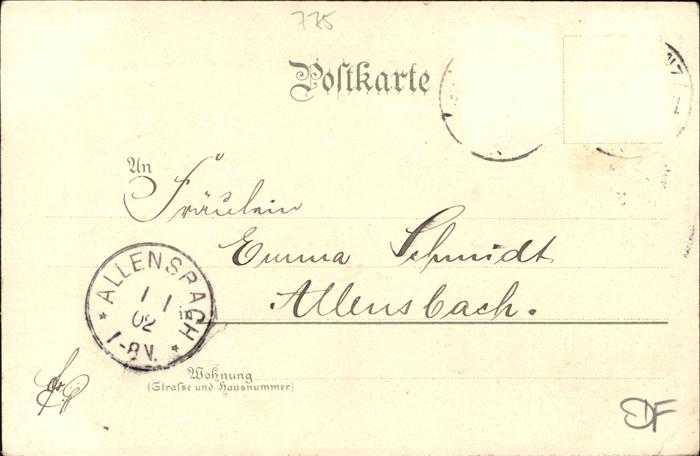 775
Postkarte
An
Fräulein
Emma Schmidt
Allensbach.
in
ALLENSBACH
1 1
02
* 1-8V. *
Wohnung
(Strasse und Hausnummer)